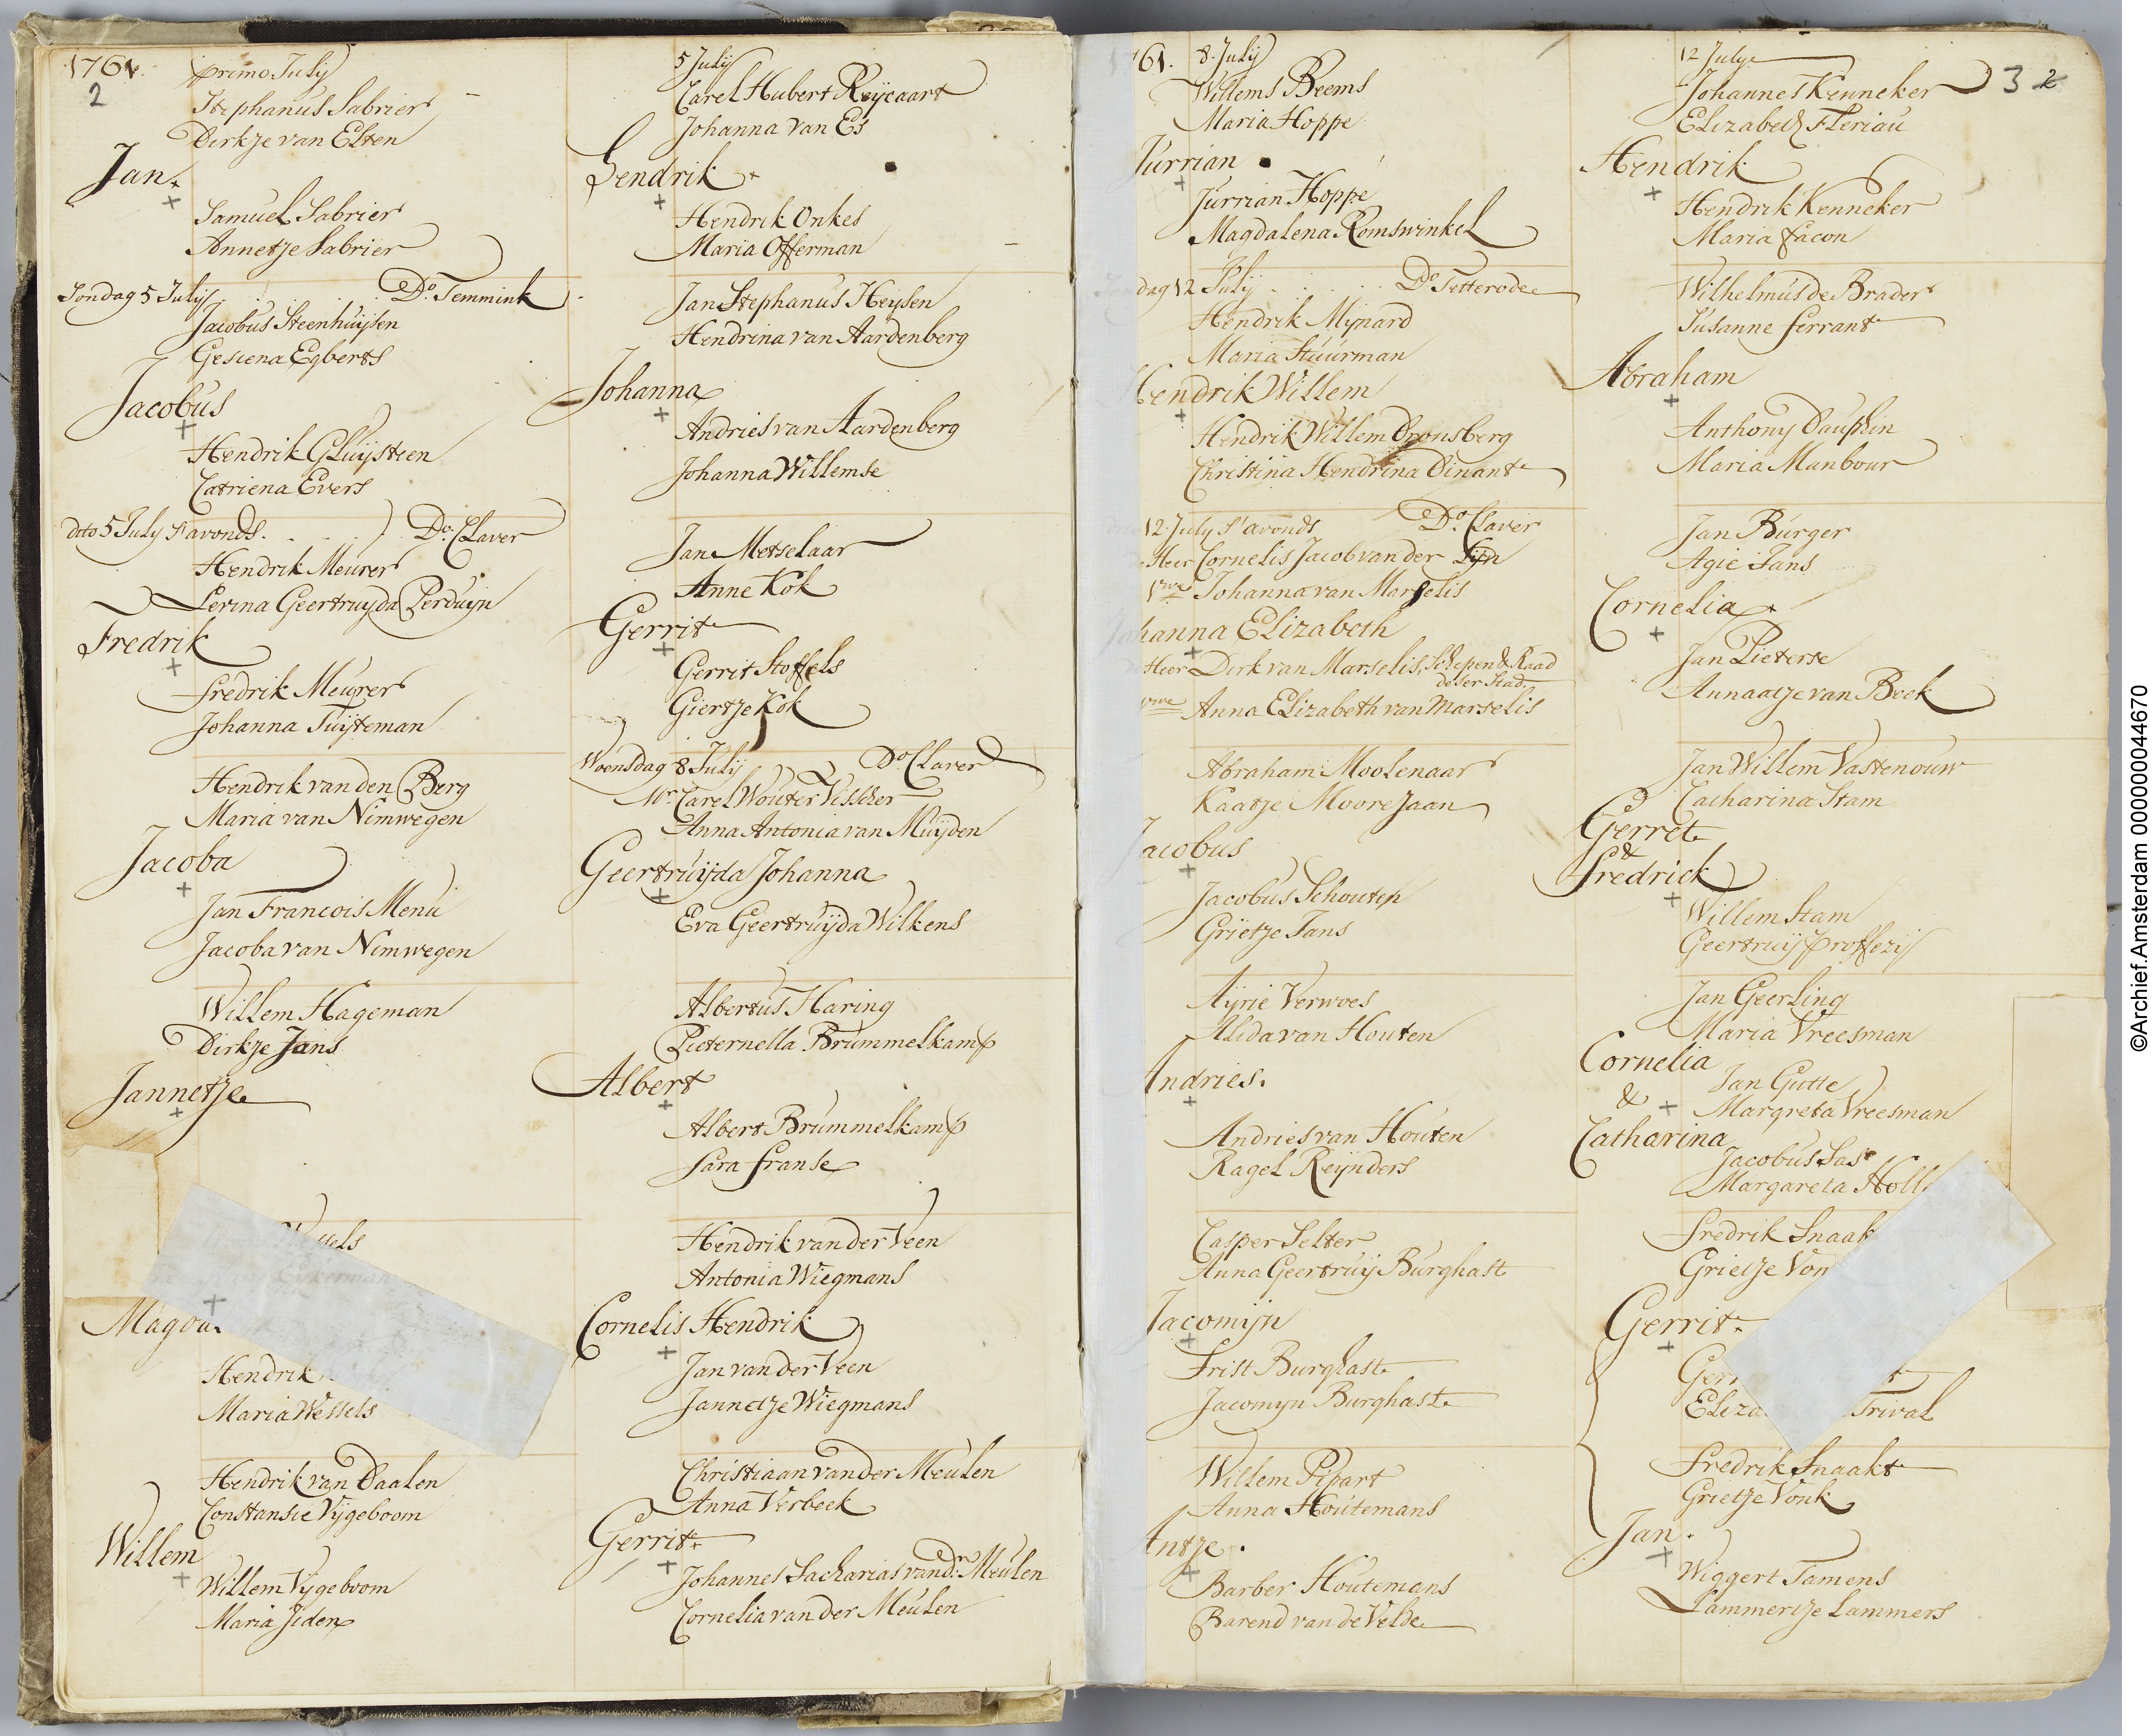 1761.
2
primo July
Stephanus Sabrier
Dirkje van Elten
Jan
Samuel Sabrier
Annetje Sabrier
Sondag 5 July Do. Temmink
Jacobus Steenhuijsen
Gesiena Egberts
Jacobus
Hendrik Gluijsteen
Catriena Evers
dito 5 July s'avonds. Do. Claver
Hendrik Meurer
Lerina Geertruyda Perduyn
Fredrik
Fredrik Meurer
Johanna Tuijteman
Hendrik van den Berg
Maria van Nimwegen
Jacoba
Jan Francois Menu
Jacoba van Nimwegen
Willem Hageman
Dirkje Jans
Jannetje
Hendrik
Maria Wessels
Hendrik van Daalen
Constansie Vijgeboom
Willem
Willem Vijgeboom
Maria Jiden
5 July
Carel Hubert Reijcaart
Johanna van Es
Hendrik
Hendrik Onkes
Maria Offerman
Jan Stephanus Heijsen
Hendrina van Aardenberg
Johanna
Andries van Aardenberg
Johanna Willemse
Jan Metselaar
Anne Kok
Gerrit
Gerrit Stoffels
Giertje Kok
Woensdag 8 July Do. Claver
Mr. Carel Wouter Visscher
Anna Antonia van Muijden
Geertruijda Johanna
Eva Geertruijda Wilkens
Albertus Haring
Pieternella Brummelkamp
Albert
Albert Brummelkamp
Sara Franse
Hendrik van der Veen
Antonia Wiegmans
Cornelis Hendrik
Jan van der Veen
Jannetje Wiegmans
Christiaan van der Meulen
Anna Verbeek
Gerrit
Johannes Sacharias van dn. Meulen
Cornelia van der Meulen
1761. 8. July
Willems Beems
Maria Hoppe
Jurrian
Jurrian Hoppe
Magdalena Romswinkel
dag 12 July Do. Tetterode
Hendrik Mijnard
Maria Stuurman
Hendrik Willem
Hendrik Willem Dronsberg
Christina Hendrina Dinant
12 July s'avonds Do. Claver
Heer Cornelis Jacob van der Lijn
vrwe Johanna van Marselis
Johanna Elizabeth
Heer Dirk van Marselis, Schepen & Raad
deser Stad
vrwe Anna Elizabeth van Marselis
Abraham Moolenaar
Kaatje Moorejaan
Jacobus
Jacobus Schouten
Grietje Jans
Aijrie Verwoes
Alida van Houten
Andries.
Andries van Houten
Ragel Reijnders
Casper Selter
Anna Geertruij Burghast
Jacomijn
Frist Burghast
Jacomyn Burghast
Willem Pipart
Anna Houtemans
Antje.
Barber Houtemans
Barend van de Velde
12 July
3 2
Johannes Kenneker
Elizabeth Fleriau
Hendrik
Hendrik Kenneker
Maria Facon
Wilhelmus de Brader
Susanne Ferrant
Abraham
Anthony Dauphin
Maria Manbour
Jan Burger
Agie Jans
Cornelia
Jan Pieterse
Annaatje van Beek
Jan Willem Vastenouw
Catharina Stam
Gerret
&
Fredrick
Willem Stam
Geertruij Proffezij
Jan Geerling
Maria Vreesman
Cornelia
Jan Gutte
& Margreta Vreesman
Catharina
Jacobus Sas
Margareta Holl
Fredrik Snaak
Grietje Von
Gerrit
Ger
Eliza Trival
Fredrik Snaakt
Grietje Vonk
Jan.
Wiggert Tamens
Lammertje Lammers
©Archief.Amsterdam 000000044670